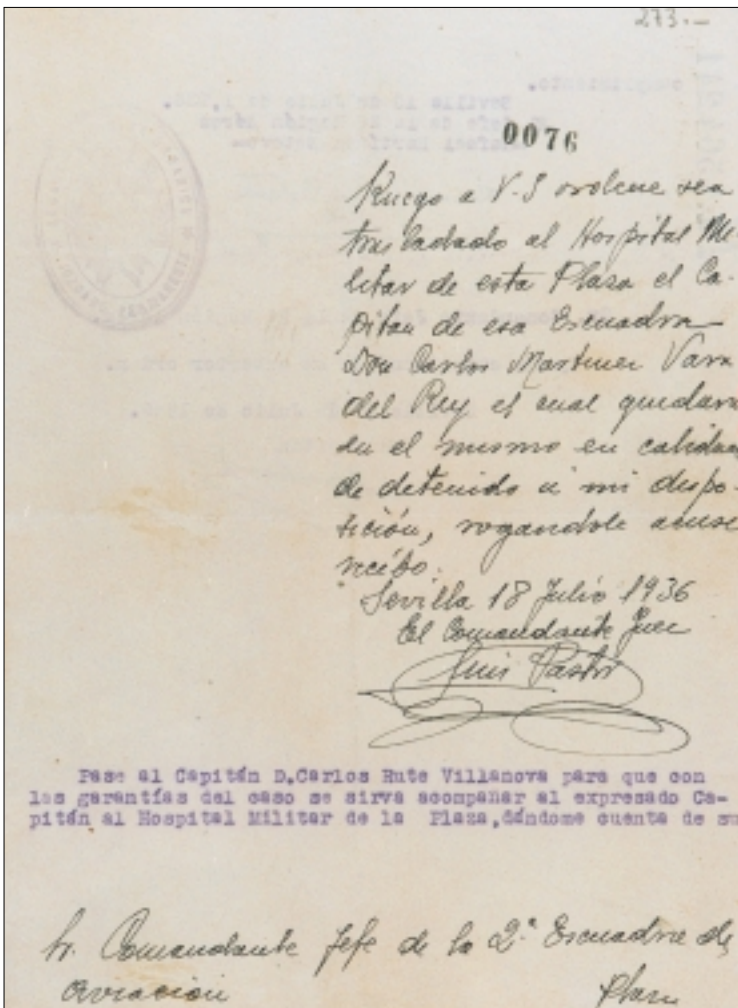 273.-
0076
Ruego a V.S ordene sea
trasladado al Hospital Mi-
litar de esta Plaza el Ca-
pitan de esa Escuadra
Don Carlos Martinez Vara
del Rey el cual quedara
en el mismo en calidad
de detenido a mi dispo-
sición, rogandole acuse
recibo.
Sevilla 18 Julio 1936
El Comandante Juez
Luis Pastor
Pase al Capitán D.Carlos Rute Villanova para que con
las garantías del caso se sirva acompañar al expresado Ca-
pitán al Hospital Militar de la Plaza,dándome cuenta de su
Sr. Comandante Jefe de la 2ª Escuadra de
Aviacion Plaza